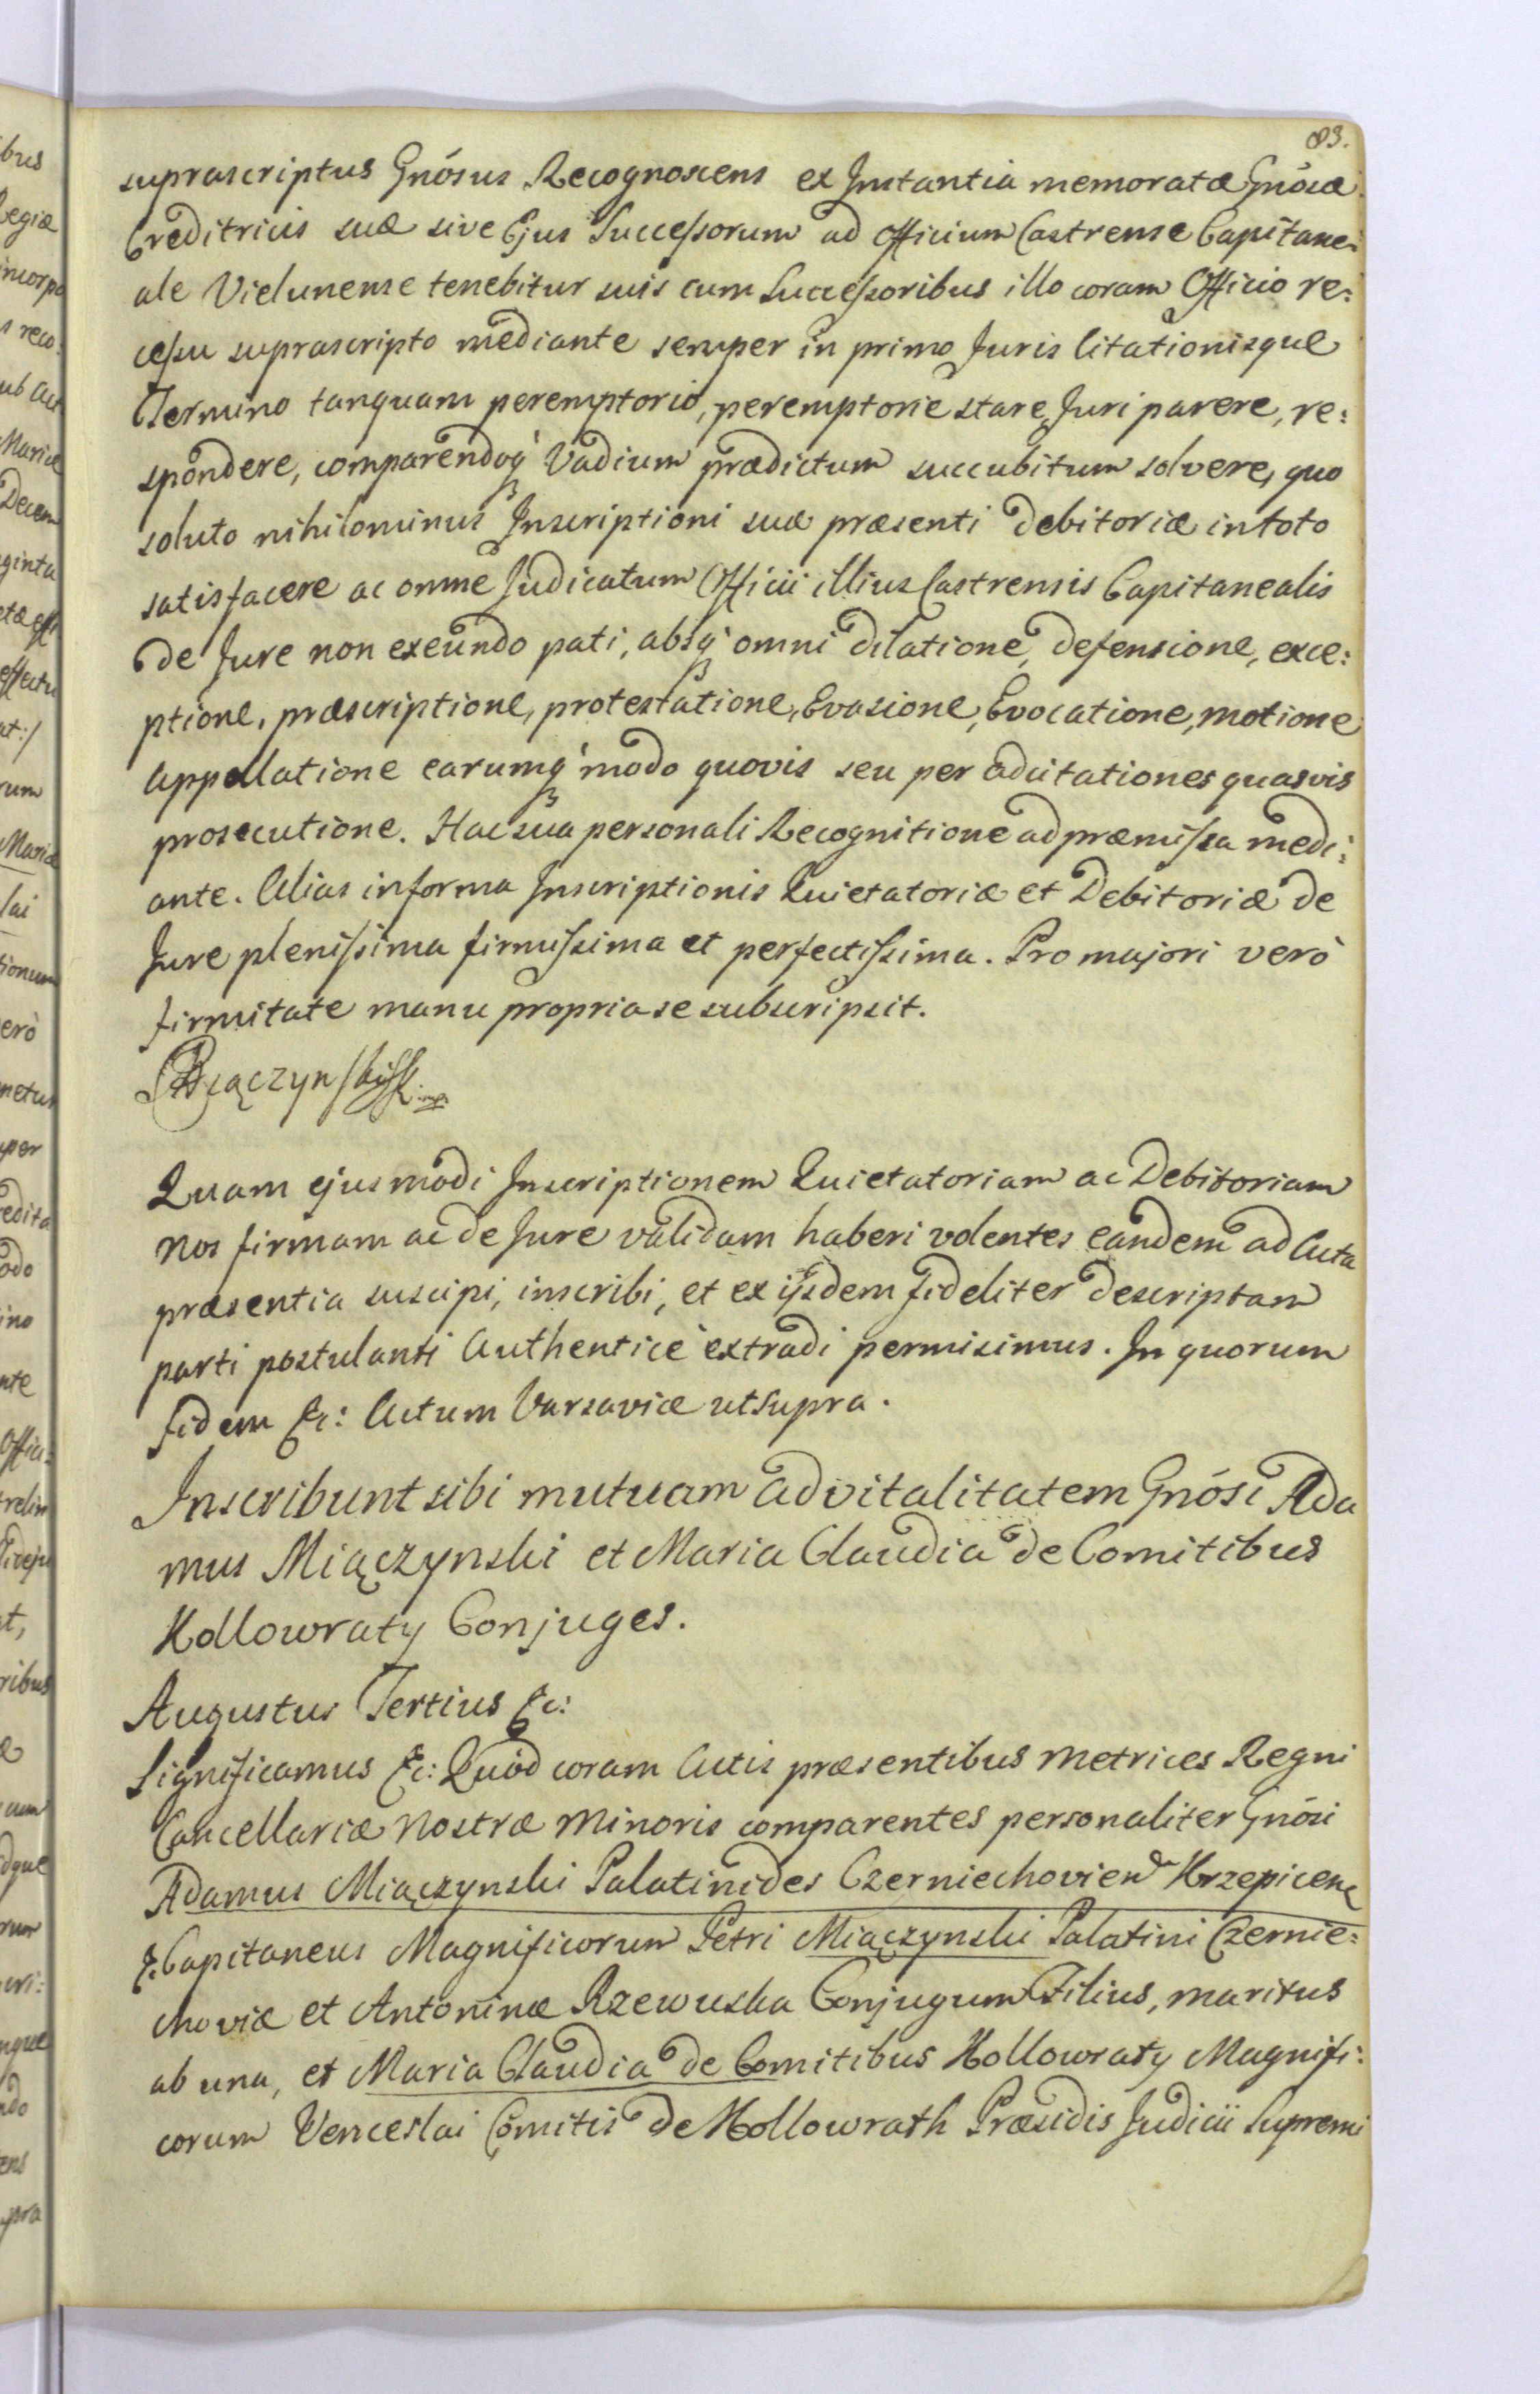 83.
suprascriptus Gnósus Recognoscens ex Instantia memoratæ Gnósæ
Creditricis suæ sive Ejus Successorum ad Officium Castrense Capitane:
ale Vielunense tenebitur suis cum Successoribus illo coram Officio re:
cessu suprascripto mediante semper in primo Juris Citationisque
Termino tanquam peremptorio, peremptorie stare, Juri parere, re:
spondere, comparendoq́ Vadium prædictum succubitum solvere, quo
soluto nihilominus Inscriptioni suæ præsenti debitoriæ in toto
satisfacere ac omne Judicatum Officii illius Castrensis Capitanealis
de Jure non exeundo pati, absq́ omni dilatione, defensione, exce:
ptione, præscriptione, protestatione, Evasione, Evocatione, motione
Appellatione earumq́ modo quovis seu per adcitationes quasvis
prosecutione. Hac sua personali Recognitione ad præmissa medi:
ante. Alias in forma Inscriptionis Quietatoriæ et Debitoriæ de
Jure plenissima firmissima et perfectissima. Pro majori verò
firmitate manu propria se subscripsit.
Quam ejusmodi Inscriptionem Quietatoriam ac Debitoriam
Nos firmam ac de Jure validam haberi volentes eandem ad Acta
præsentia suscipi, inscribi, et ex ijsdem fideliter descriptam
parti postulanti Authenticè extradi permisimus. In quorum
fidem &c: Actum Varsaviæ ut supra.
Inscribunt sibi mutuam advitalitatem Gnósi Ada
mus Miączynski et Maria Claudia de Comitibus
Kollowraty Conjuges.
Augustus Tertius &c:
Significamus &c: Quod coram Actis præsentibus Metrices Regni
Cancellariæ Nostræ Minoris comparentes personaliter Gnósi
Adamus Miączynski Palatinides Czerniechovien Krzepicen
&. Capitaneus Magnificorum Petri Miączynski Palatini Czernie:
choviæ et Antoninæ Rzewuska Conjugum Filius, maritus
ab una, et Maria Claudia de Comitibus Kollowraty Magnifi:
corum Venceslai Comitis de Kollowrath Præsidis Judicii Supremi